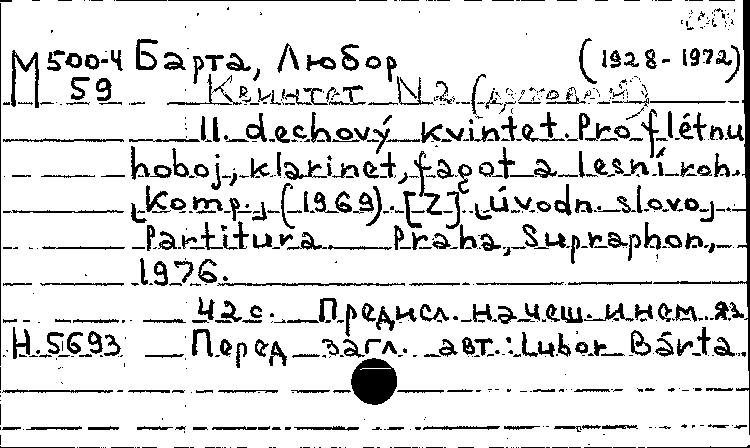 М 500-4 Барта, Любор (1928-1972)
59 Квинтет N 2 (духовой)
II. dechový kvintet. Pro flétnu
hoboj, klarinet, fagot a lesní roh.
[Komp.] (1969). [Z]č [úvodn. slovo]
Partitura. Praha, Supraphon,
1976.
42 с. Предисл. на чеш. и нем. яз
Н.5693 Перед загл. авт.: Lubor Bárta.